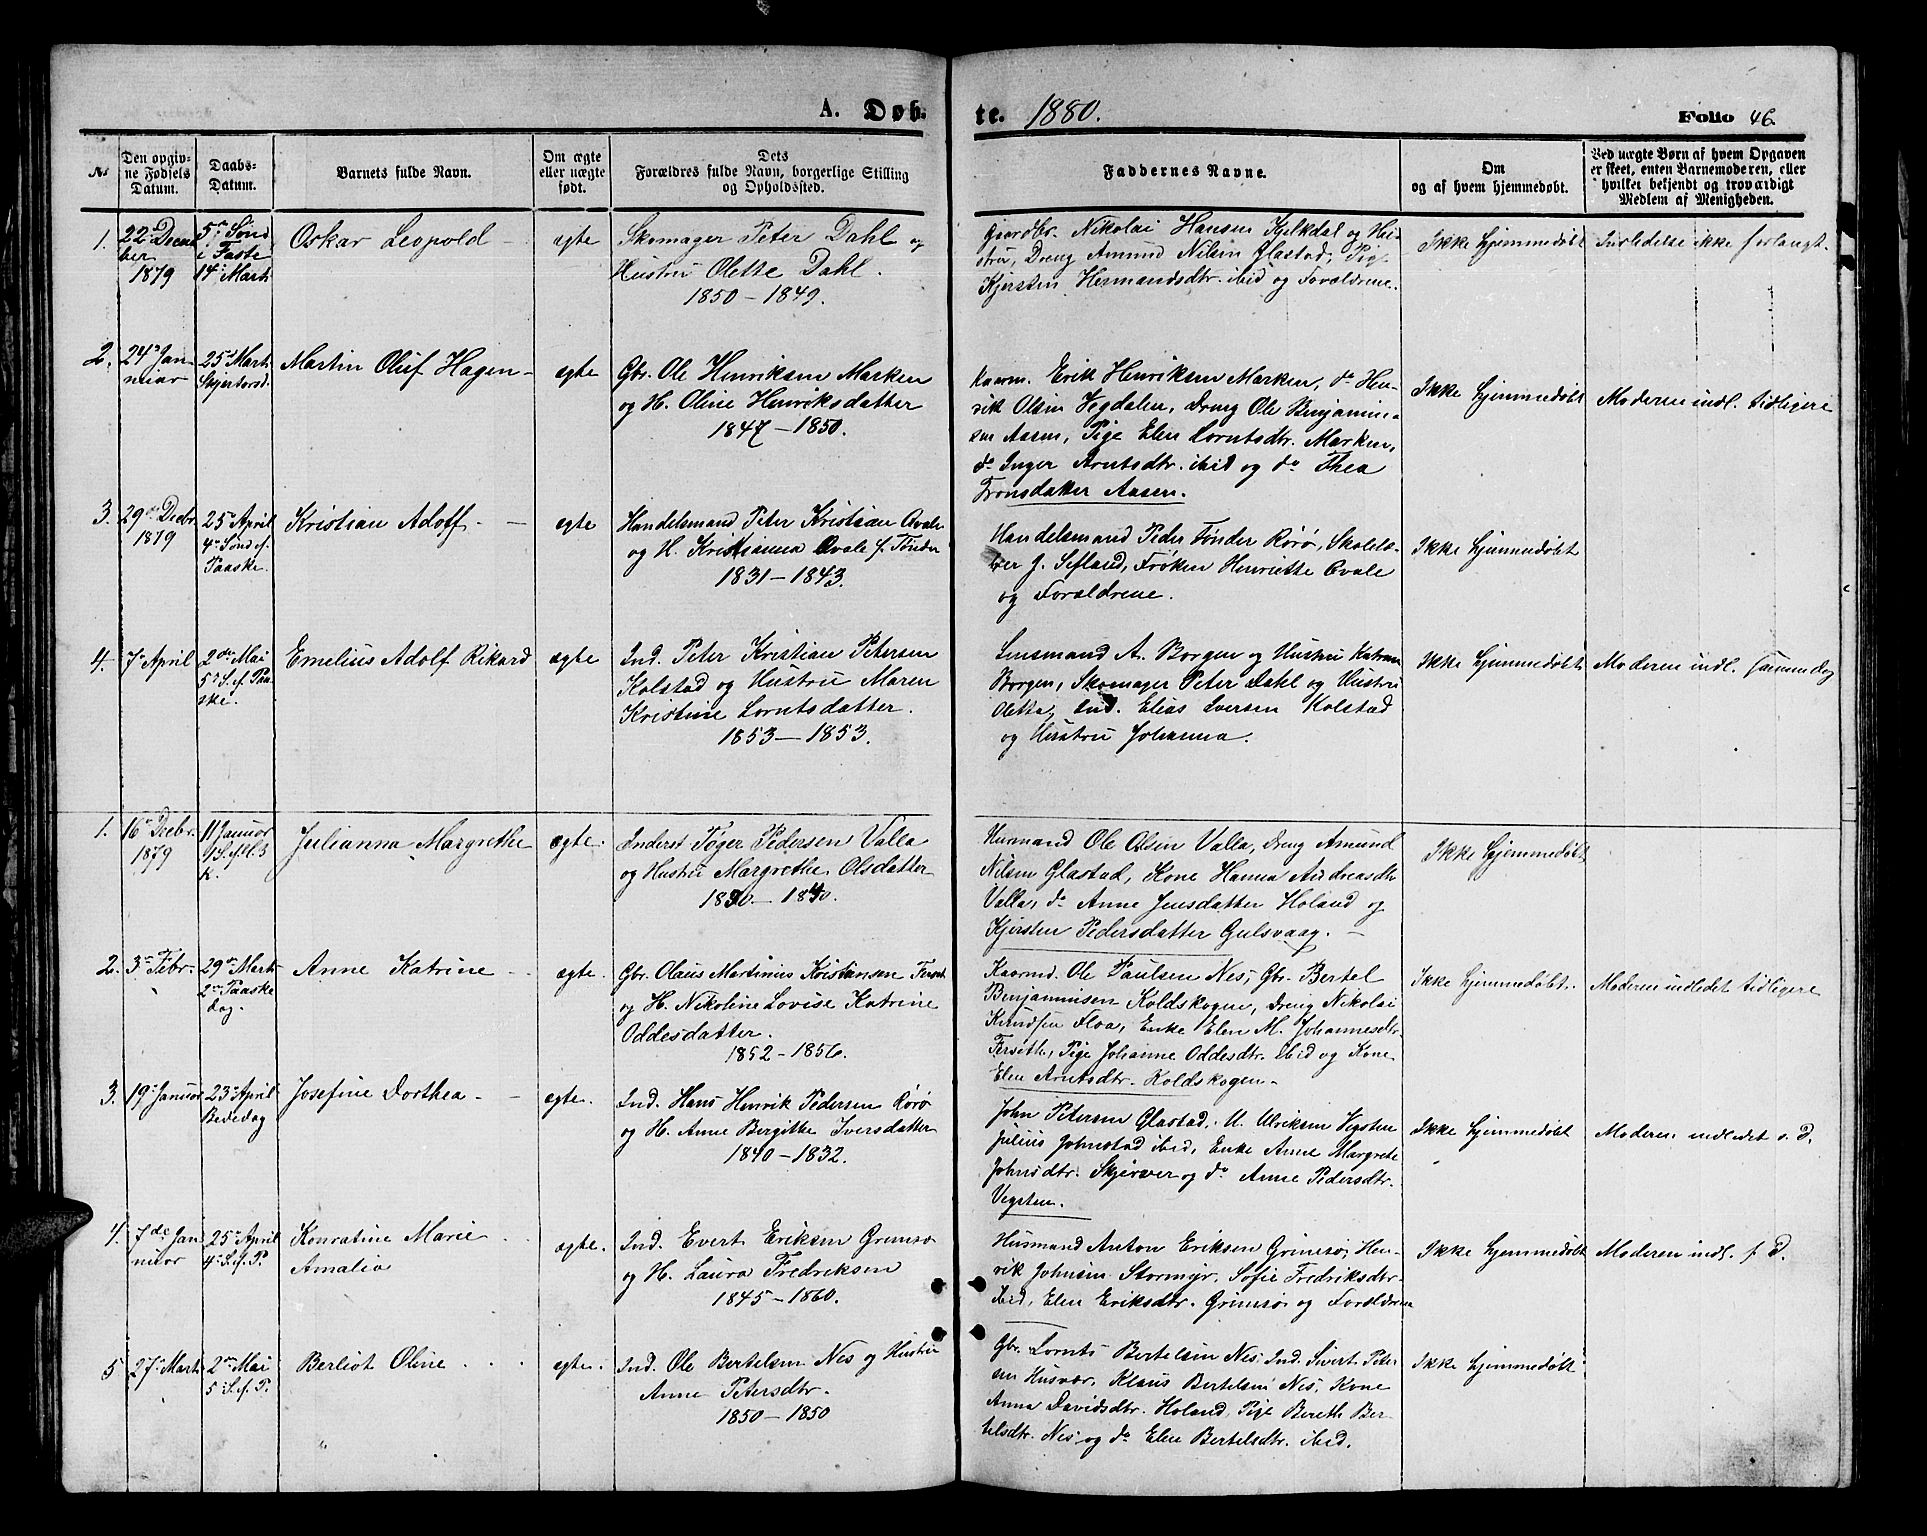 A. Døb-
te. 1880.
Folio 46.
№
Den opgiv-
ne Fødsels
Datum.
Daabs-
Datum.
Barnets fulde Navn.
Om ægte
eller uægte
født.
Dets
Forældres fulde Navn, borgerlige Stilling
og Opholdssted.
Faddernes Navne.
Om
og af hvem hjemmedøbt.
Ved uægte Børn af hvem Opgaven
er skeet, enten Barnemoderen, eller
hvilket bekjendt og troværdigt
Medlem af Menigheden.
1.
22de Decem
ber
1879
5te Sønd
i Faste
14de Marts
Oskar Leopold
ægte
Skomager Peter Dahl og
Hustru Olette Dahl.
1850 - 1849.
Gaardbr. Nikolai Hansen Kjelkdal og Hu-
stru, Dreng Amund Nilsen Glastad, Pige
Kjersten Hermandsdtr. ibid og Forældrene.
Ikke hjemmedøbt
Indledelse ikke forlangt.
2.
24de Jan
nuar
25de Marts
Skjertorsd.
Martin Oluf Hagen
ægte
Gbr. Ole Henriksen Marken
og H. Oline Henriksdatter
1847 - 1850.
Kaarm. Erik Henriksen Marken, do Hen-
rik Olsen Vegdalen, Dreng Ole Benjamin-
sen Aasen, Pige Elen Lorntsdtr. Marken,
do Inger Arntsdtr. ibid og do Thea
Tronsdatter Aasen.
Ikke hjemmedøbt
Moderen indl. tidligere
3.
29de Decbr.
1879
25de April
4de Sønd. ef.
Paaske.
Kristian Adolf
ægte
Handelsmand Peter Kristian Qvale
og H. Kristianna Qvale f. Tønder
1831 - 1843.
Handelsmand Peder Tønder Rørø, Skolelæ-
rer J. Sefland, Frøken Henriette Qvale
og Forældrene.
Ikke hjemmedøbt
4.
7de April
2den Mai
5te S. ef. Paa-
ske.
Emelius Adolf Rikard
ægte
Ind. Peter Kristian Petersen
Kolstad og Hustru Maren
Kristine Lorntsdatter.
1853 - 1853.
Lensmand A. Borgen og Hustru Katrine
Borgen, Skomager Peter Dahl og Hustru
Oletta, Ind. Elias Iversen Kolstad
og Hustru Johanna.
Ikke hjemmedøbt
Moderen indl. samme dag
1.
16de Decbr.
1879
11 Januar
1 S. ef. H. 3
K.
Julianna Margrethe
ægte.
Inderst Tøger Pedersen Valla
og Hustru Margrethe Olsdatter
1830 - 1840.
Husmand Ole Olsen Valla, Dreng Amund
Nilsen Glastad, Kone Hanna Andreasdtr.
Valla, do Anne Jensdatter Holand og
Kjersten Pedersdatter Gulsvaag.
Ikke hjemmedøbt
2.
3de Febr.
29de Marts
2den Paaske
dag.
Anne Katrine
ægte.
Gbr. Olaus Martinus Kristiansen
og H. Nikoline Lovise Katrine
Oddesdatter.
1852 - 1856.
Kaarmd. Ole Paulsen Nes, Gbr. Bertel
Benjaminsen Koldskogen, Dreng Nikolai
Knudsen Floa, Enke Elen M. Johannesdtr.
Ferseth, Pige Johanne Oddesdtr. ibid og Kone
Elen Arntsdtr. Koldskogen.
Ikke hjemmedøbt.
Moderen indledet tidligere
3.
19de Januar
23de April
Bededag
Josefine Dorthea
ægte.
Ind. Hans Henrik Pedersen Rørø
og H. Anne Bergitte Iversdatter
1840 - 1832.
John Petersen Glastad, U. Ulriksen Vegsten
Julius Johnstad ibid, Enke Anne Margrete
Johnsdtr. Skjerver og do Anne Pedersdtr.
Vegsten.
Ikke hjemmedøbt
Moderen indledet s. D.
4.
7de Jan
nuar
25de April
4de S. ef. P.
Konratine Marie
Amalia
ægte.
Ind. Evert Eriksen Grimsø
og H. Laura Fredriksen
1845 - 1860.
Husmand Anton Eriksen Grimsø, Hen-
rik Johnsen Stormyr, Sofie Fredriksdtr.
ibid, Elen Eriksdtr. Grimsø og Forældrene
Ikke hjemmedøbt
Moderen indl. s. D.
5
27de Marts
2den Mai
5te S. ef. P.
Berliot Oline
ægte.
Ind. Ole Bertelsen Nes og Hustru
Anne Petersdtr.
1850 - 1850
Gbr. Lornts Bertelsen Nes, Ind. Sivert Peter-
sen Husvær, Klaus Bertelsen Nes, Kone
Anna Davidsdtr. Holand, Pige Bereth Ber-
telsdtr. Nes og do Elen Bertelsdtr. ibid.
Ikke hjemmedøbt